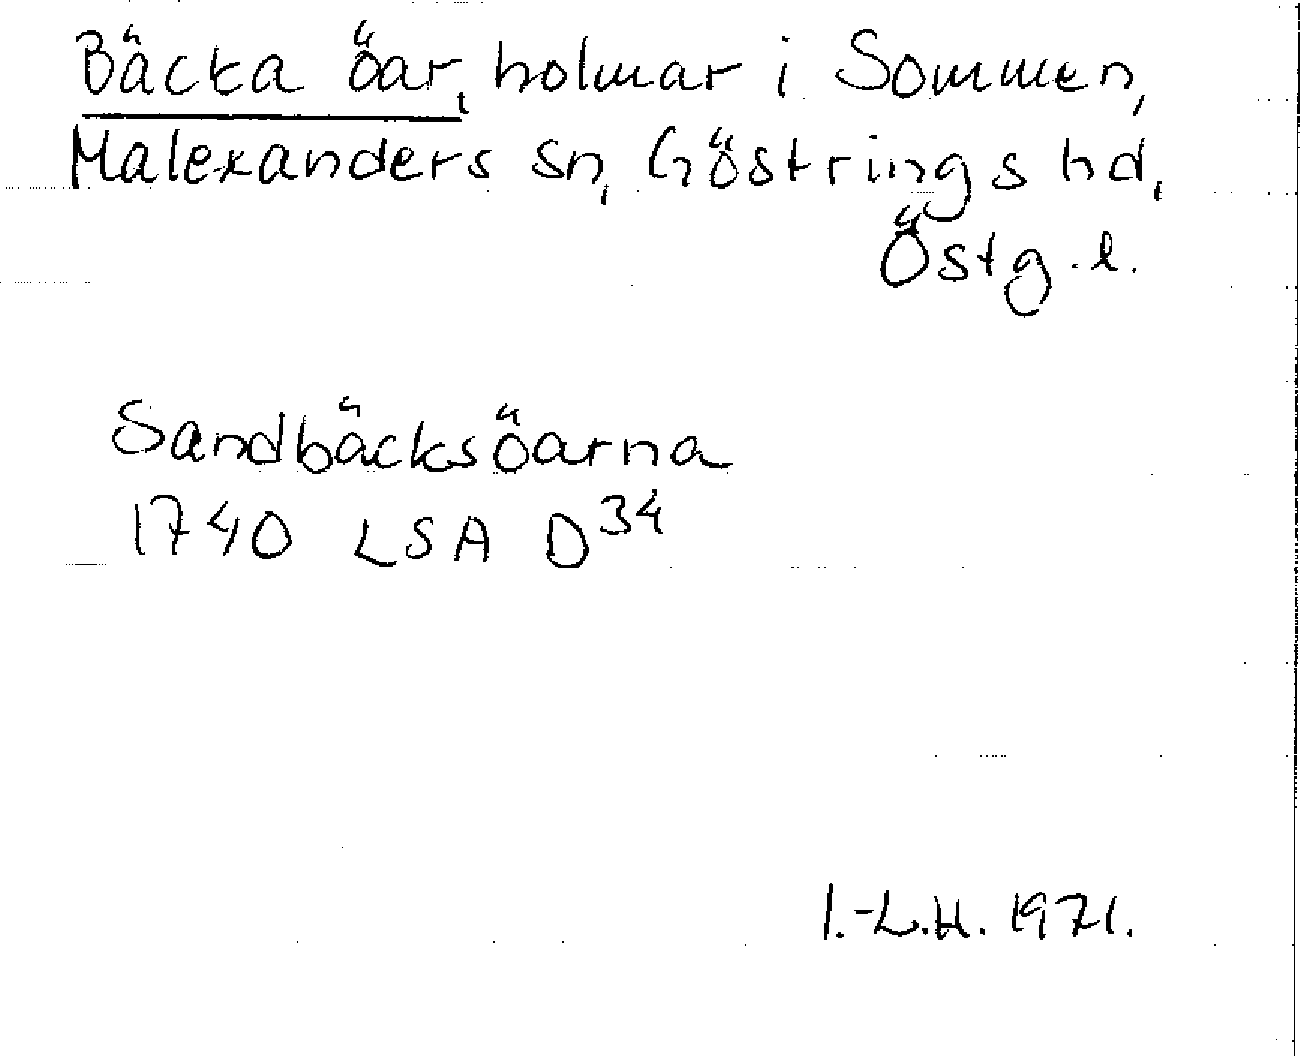 Bäcka öar, holmar i Sommen,
Malexanders sn, Göstrings hd,
Östg.l.
Sandbäcksöarna
1740 LSA D34
I.-L.H. 1971.